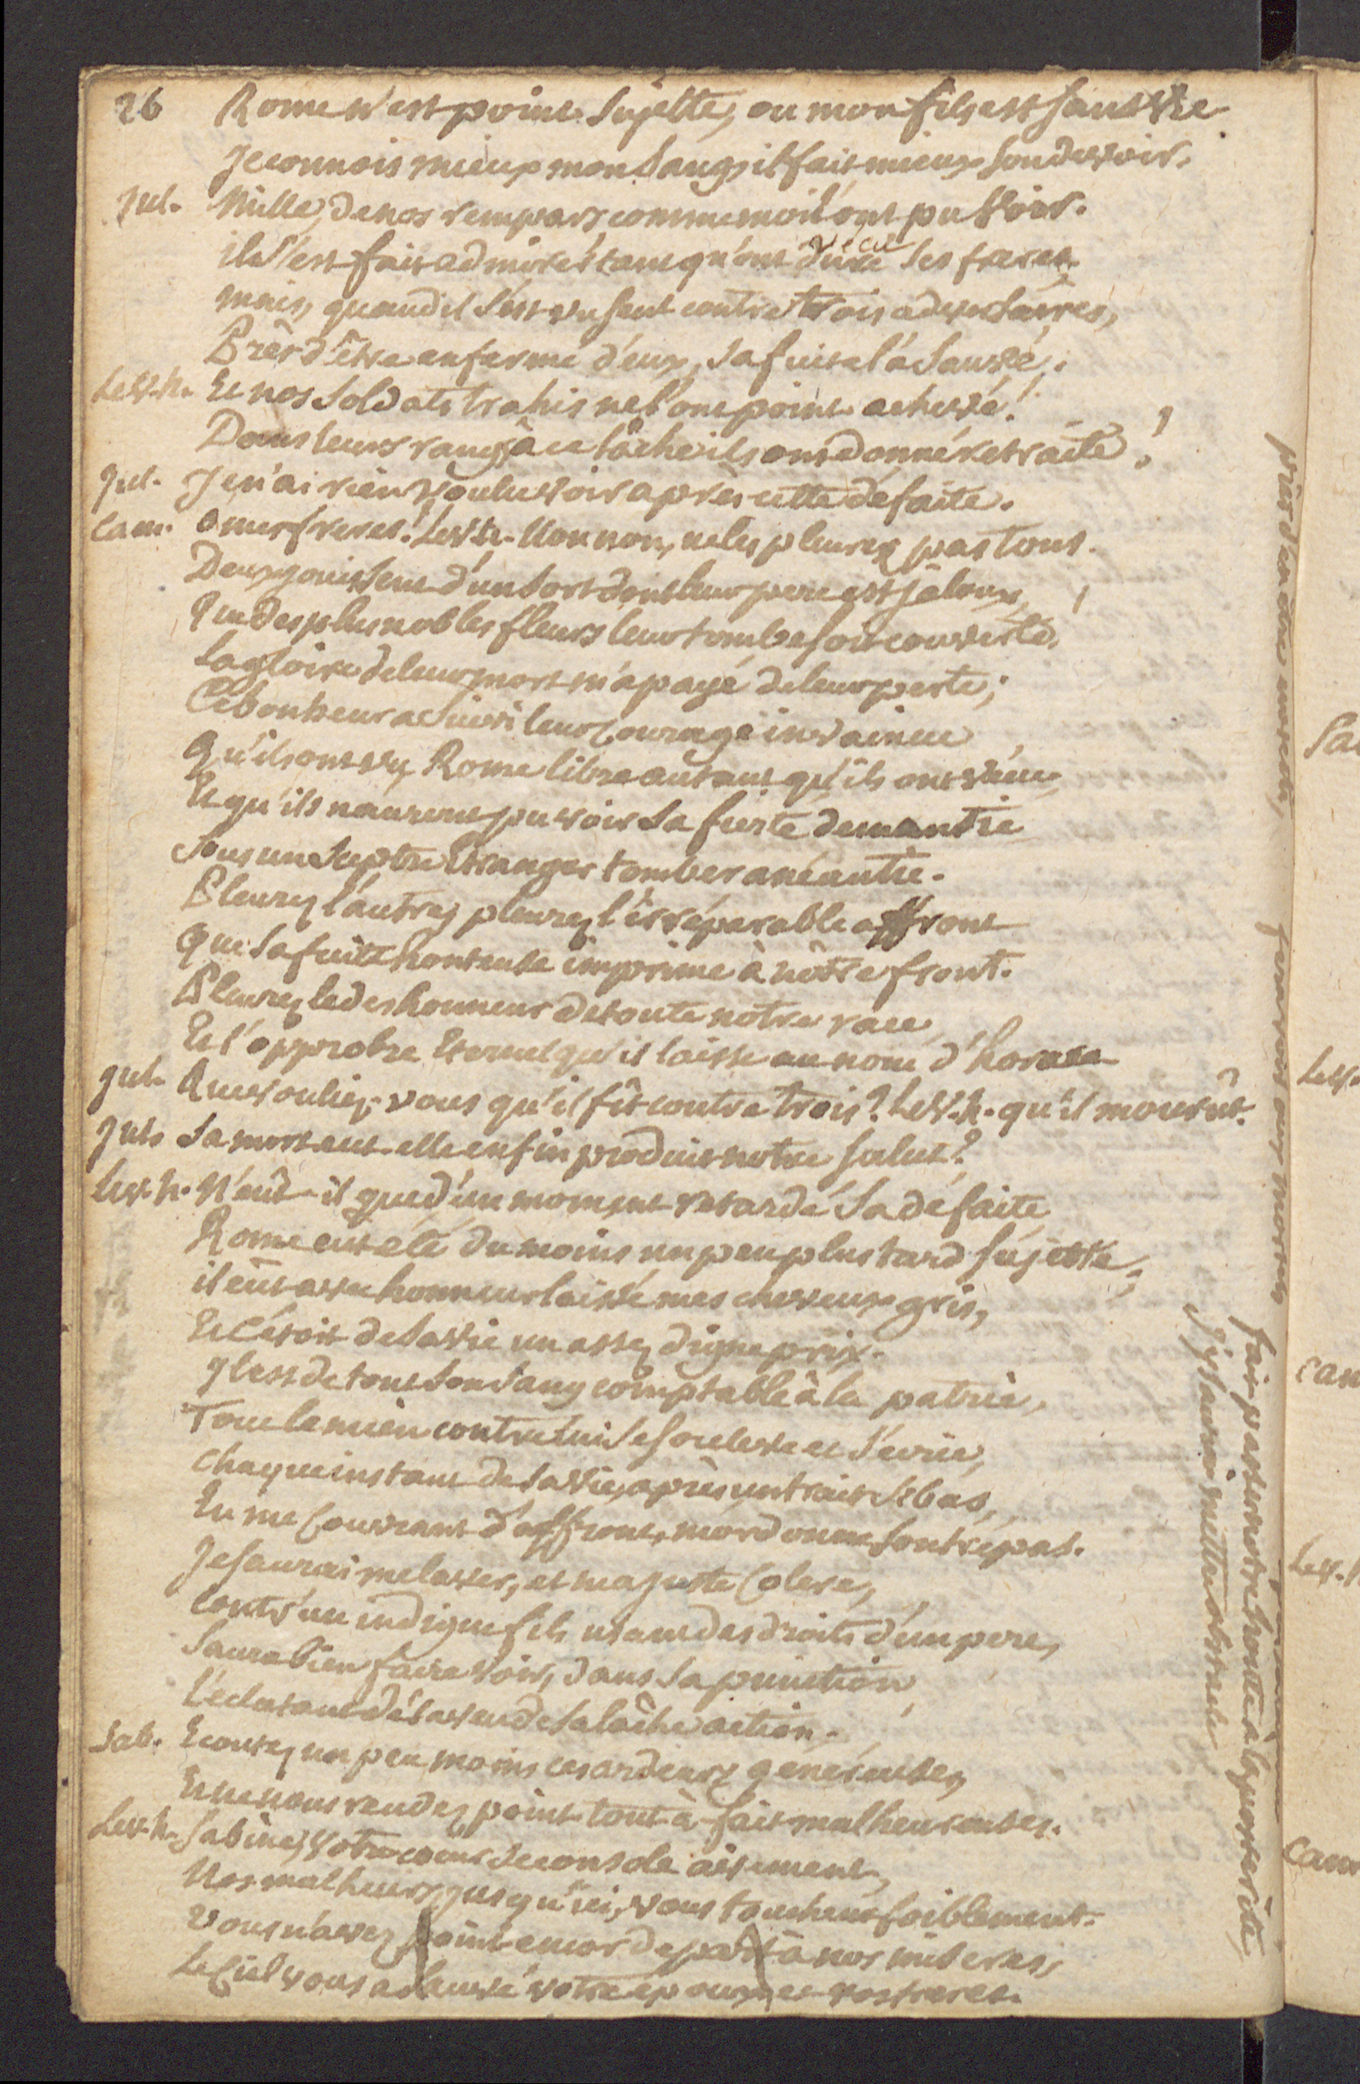 26 Rome n'est point sujette, ou mon fils est sans vie
Je connois mieux mon sang, il sait mieux son devoir.
Jul. Mille, de nos rempars comme moi l'ont pu voir.
il s'est fait admirer tant qu'ont duré vécu ses freres,
mais, quand il s'est vu seul contre trois adversaires,
Prêt d'être enfermé d'eux, sa fuite l'a sauvé.
Le v. h. Et nos soldats trahis ne l'ont point achevé!
Dans leurs rangs à ce lâche ils ont donné retraite!
Jul. Je n'ai rien voulu voir après cette défaite.
Cam. O mes freres! Le v. h. Non non, ne les pleurez pas tous.
Deux jouissent d'un sort dont leur pere est jaloux,
Que des plus nobles fleurs leur tombe soit couverte,
La gloire de leur mort m'a payé de leur perte;
Ce bonheur a suivi leur courage invaincu
Qu'ils ont vu Rome libre autant qu'ils ont vécu,
Et qu'ils n'auront pu voir sa fierté démentie
Sous un sceptre étranger tomber anéantie.
Pleurez l'autre, pleurez l'irréparable affront
Que sa fuite honteuse imprime à nôtre front.
Pleurez le deshonneur de toute notre race,
Et l'opprobre éternel qu'il laisse au nom d'horace
Jul. Que vouliez-vous qu'il fît contre trois? Le V. h. qu'il mourût.
Jul. Sa mort eut-elle enfin produit notre salut?
Le v. h. N'eût-il que d'un moment retardé sa défaite,
Rome eut été du moins un peu plus tard sujette,
il eût avec honneur laissé mes cheveux gris,
Et c'étoit de sa vie un assez digne prix.
Il est de tout son sang comptable à la patrie,
Tout le mien contre lui se souleve et s'écrie,
Chaque instant de sa vie, après un trait si bas,
En me couvrant d'affront, m'ordonne son trépas.
Je saurai me laver, et ma juste colere,
Contr'un indigne fils usant des droits d'un pere,
Saura bien faire voir, dans sa punition,
L'éclatant désaveu de sa lâche action.
Sab. Ecoutez un peu moins ces ardeurs généreuses,
Et ne nous rendez point tout à fait malheureuses.
Le v. h. Sabine, votre coeur se console aisément,
Nos malheurs, jusqu'ici, vous touchent foiblement.
Vous n'avez point encor de part à nos miseres,
Le Ciel vous a sauvé votre époux, et vos freres.
fair passer notre honte à la posterité,
j'y saurai mettre obstacle
Sa
Le v.
Cam
Le v. h
Cam